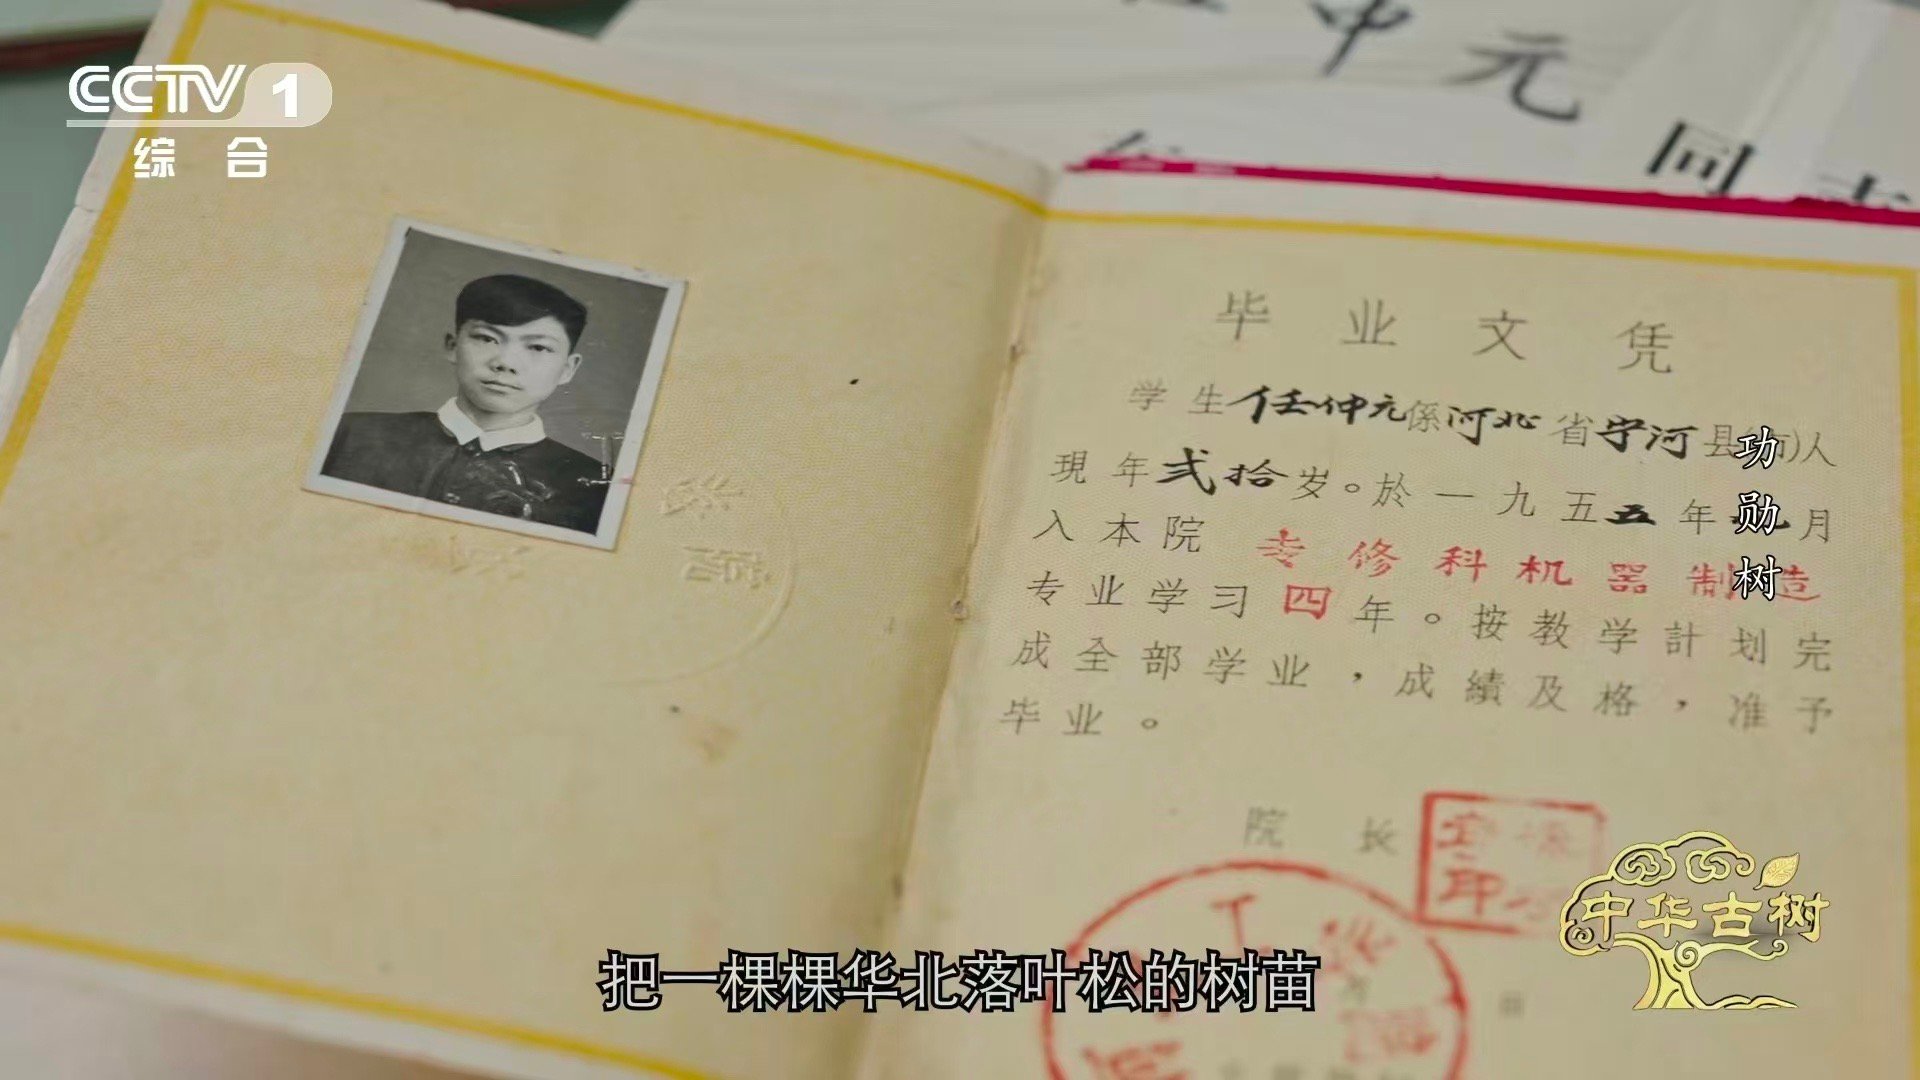 CCTV 1
综 合
中元
同志
毕业文凭
学生任仲元係河北省宁河县(市)人
現年弍拾岁。於一九五五年九月
入本院专修科机器制造
专业学习四年。按教学計划完
成全部学业，成績及格，准予
毕业。
院长
印
工
功勋树
中华古树
把一棵棵华北落叶松的树苗